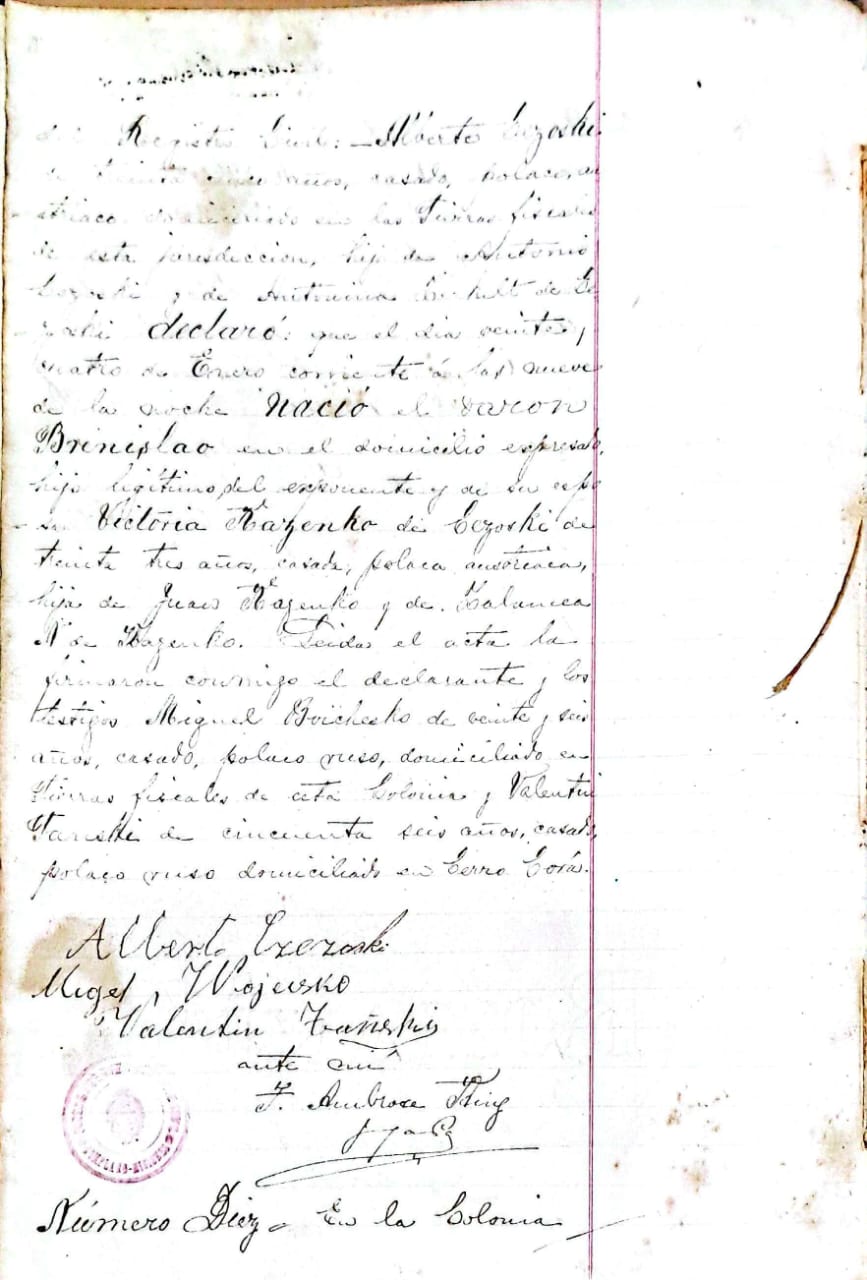 del Registro Civil: – Alberto Cezoski
de treinta cinco años, casado, polaco, au
striaco domiciliado en las Tierras fiscales
de esta jurisdiccion, hijo de Antonio
Cezoski y de Antonina de Ce
zoski declaró: que el dia veinte y
cuatro de Enero corriente á las nueve
de la noche nació el varon
Brinislao en el domicilio expresado,
hijo legitimo del exponente y de su espo
sa Victoria Kazenko de Cezoski de
treinta tres años, casada, polaca austriaca,
hija de Juan Kazenko y de
N de Kazenko. Leida el acta la
firmaron conmigo el declarante y los
testigos Miguel Boichesko de veinte y seis
años, casado, polaco ruso, domiciliado en
Tierras fiscales de esta Colonia y Valentin
Tanski de cincuenta seis años, casado,
polaco ruso domiciliado en Cerro Corá.
Albert Czezoski
Migel Wojcisko
Valentin Zañskis
ante mi
F. Ambrose King
Número Diez – En la Colonia